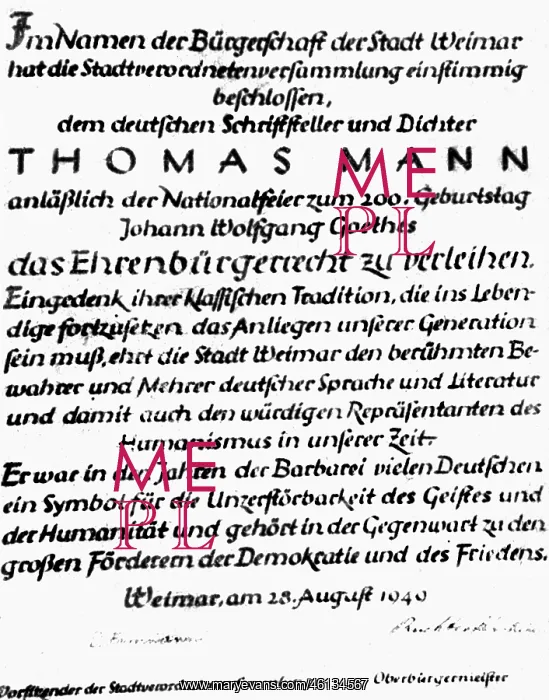 Im Namen der Bürgerschaft der Stadt Weimar
hat die Stadtverordnetenversammlung einstimmig
beschlossen,
dem deutschen Schriftsteller und Dichter
THOMAS MANN
anläßlich der Nationalfeier zum 200. Geburtstag
Johann Wolfgang Goethes
das Ehrenbürgerrecht zu verleihen.
Eingedenk ihrer klassischen Tradition, die ins Leben-
dige fortzusetzen das Anliegen unserer Generation
sein muß, ehrt die Stadt Weimar den berühmten Be-
wahrer und Mehrer deutscher Sprache und Literatur
und damit auch den würdigen Repräsentanten des
Humanismus in unserer Zeit.
Er war in den Jahren der Barbarei vielen Deutschen
ein Symbol für die Unzerstörbarkeit des Geistes und
der Humanität und gehört in der Gegenwart zu den
großen Förderern der Demokratie und des Friedens.
Weimar, am 28. August 1949
Vorsitzender der Oberbürgermeister
www.maryevans.com/46134567
ME
PL
ME
PL